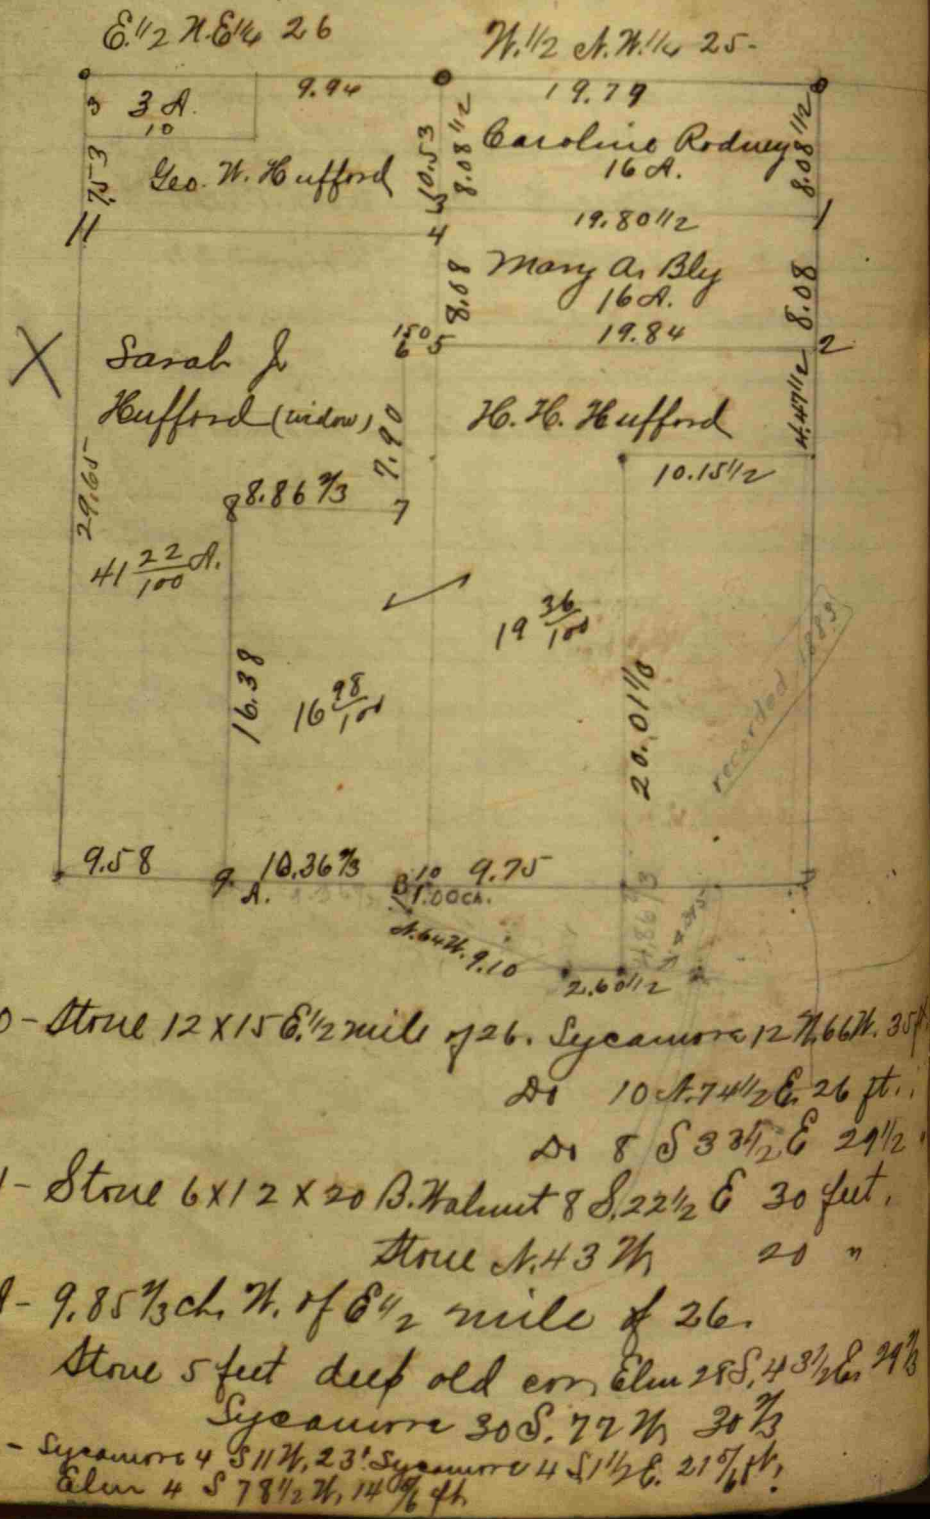 E. 1/2 N.E 1/4 26
W. 1/2 N.W. 1/4 25-
3
3 A.
10
9.94
19.79
7.53
Geo. W. Hufford
10.53
8.08 1/2
Caroline Rodney
16 A.
8.08 1/2
11
3
4
19.80 1/2
1
8.08
Mary A. Bly
16 A.
8.08
19.84
X
Sarah J.
Hufford (widow)
150
6 5
2
7.90
H. H. Hufford
4.47 1/2
29.65
8 8.86 2/3
7
10.15 1/2
41 22/100 A.
19 36/100
16.38
16 98/100
20.01 1/3
recorded 1883
9.58
9
A.
10.36 2/3
B
10
9.75
1.00 ch.
N.64 W. 9.10
4.86 2/3
2.60 1/2
0 - Stone 12 X 15 E. 1/2 mile of 26. Sycamore 12 N.66 W. 35 ft
Do 10 N.74 1/2 E. 26 ft.
Do 8 S 33 1/2 E 29 1/2 "
1 - Stone 6 X 12 X 20 B. Walnut 8 S.22 1/2 E 30 feet.
Stone N.43 W 20 "
- 9.85 2/3 ch. W. of E 1/2 mile of 26.
Stone 5 feet deep old cor. Elm 28 S. 43 1/2 E. 29 2/3
Sycamore 30 S. 77 W 30 2/3
- Sycamore 4 S 11 W. 23' Sycamore 4 S 1 1/2 E. 21 5/6 ft.
Elm 4 S 78 1/2 W. 14 5/6 ft